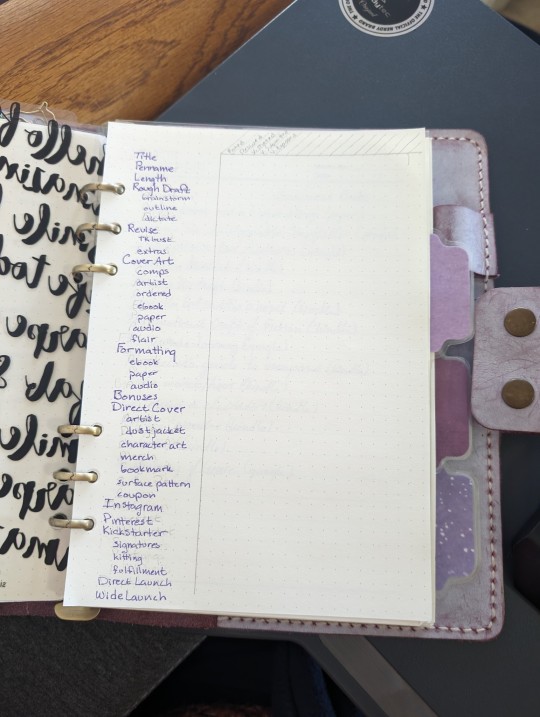 THE OFFICIAL NERDY BOARD
hello
smile
Title
Penname
Length
Rough Draft
brainstorm
outline
dictate
Revise
extras
Cover Art
comps
artist
ordered
ebook
paper
audio
flair
Formatting
ebook
paper
audio
Bonuses
Direct Cover
artist
dustjacket
character art
merch
bookmark
surface pattern
coupon
Instagram
Pinterest
Kickstarter
signatures
kitting
fulfillment
Direct Launch
Wide Launch